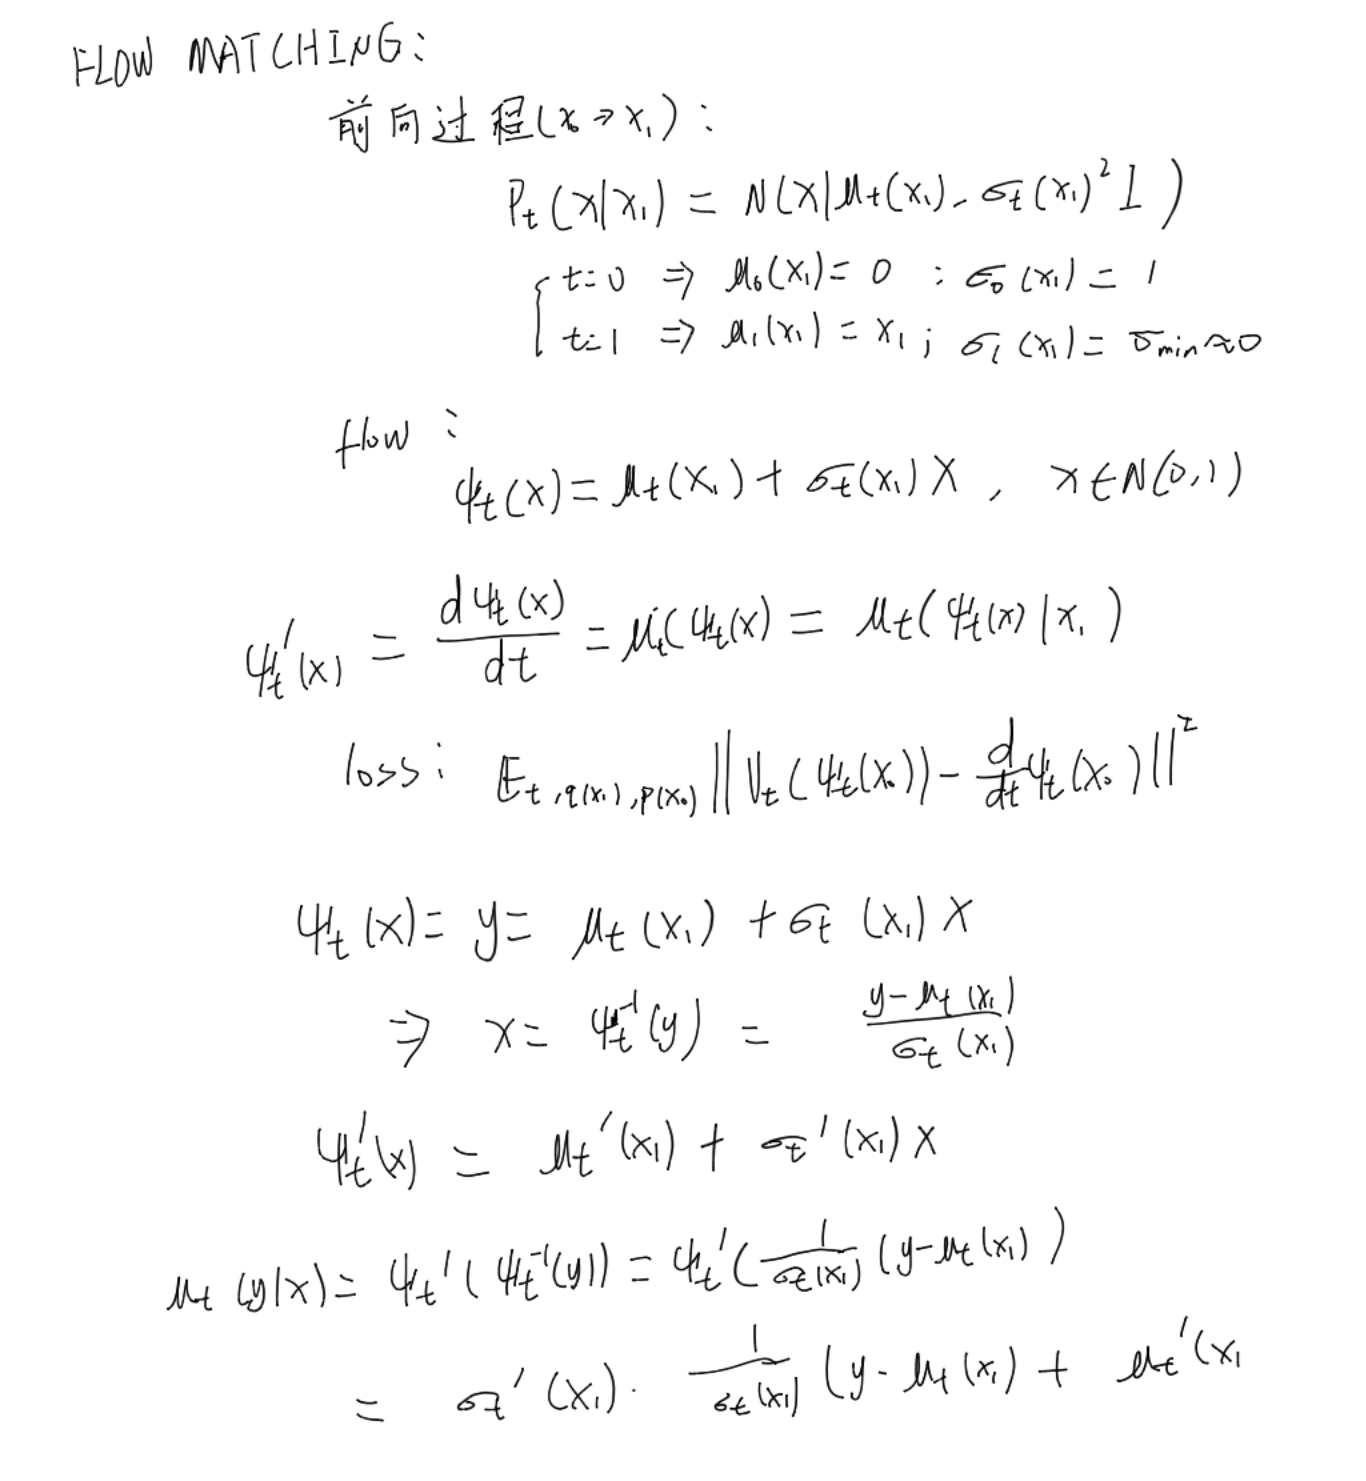 FLOW MATCHING:
前向过程(x₀→x₁):
Pₜ(x|x₁) = N(x|μₜ(x₁), σₜ(x₁)²I)
t=0 ⇒ μ₀(x₁)=0 : σ₀(x₁)=1
t=1 ⇒ μ₁(x₁)=x₁; σ₁(x₁)=σmin≈0
flow:
ψₜ(x)=μₜ(x₁)+σₜ(x₁)X, x∈N(0,1)
ψₜ'(x) = dψₜ(x)/dt = μₜ(ψₜ(x) = μₜ(ψₜ(x)|x₁)
loss: Eₜ,q(x₁),p(x₀) ||Vₜ(ψₜ(x₀))-d/dt ψₜ(x₀)||²
ψₜ(x)=y=μₜ(x₁)+σₜ(x₁)X
⇒ x=ψₜ⁻¹(y) = (y-μₜ(x₁))/(σₜ(x₁))
ψₜ'(x) = μₜ'(x₁)+σₜ'(x₁)X
μₜ(y|x)=ψₜ'(ψₜ⁻¹(y))=ψₜ'(1/σₜ(x₁) (y-μₜ(x₁))
= σₜ'(x₁)·1/σₜ(x₁) (y-μₜ(x₁)+μₜ'(x₁